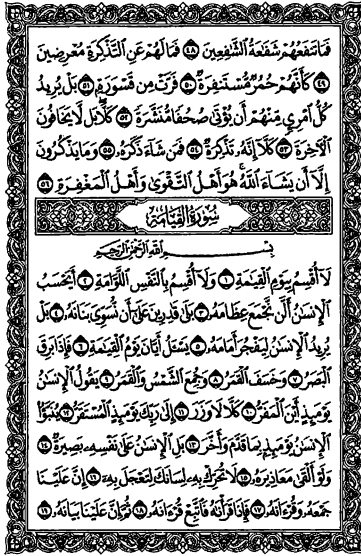 فَمَا تَنفَعُهُمْ شَفَٰعَةُ ٱلشَّٰفِعِينَ ٤٨ فَمَا لَهُمْ عَنِ ٱلتَّذْكِرَةِ مُعْرِضِينَ
٤٩ كَأَنَّهُمْ حُمُرٌ مُّسْتَنفِرَةٌ ٥٠ فَرَّتْ مِن قَسْوَرَةٍۭ ٥١ بَلْ يُرِيدُ
كُلُّ ٱمْرِئٍ مِّنْهُمْ أَن يُؤْتَىٰ صُحُفًا مُّنَشَّرَةً ٥٢ كَلَّا بَل لَّا يَخَافُونَ
ٱلْءَاخِرَةَ ٥٣ كَلَّآ إِنَّهُۥ تَذْكِرَةٌ ٥٤ فَمَن شَآءَ ذَكَرَهُۥ ٥٥ وَمَا يَذْكُرُونَ
إِلَّآ أَن يَشَآءَ ٱللَّهُ هُوَ أَهْلُ ٱلتَّقْوَىٰ وَأَهْلُ ٱلْمَغْفِرَةِ ٥٦
سُورَةُ ٱلْقِيَامَةِ
بِسْمِ ٱللَّهِ ٱلرَّحْمَٰنِ ٱلرَّحِيمِ
لَآ أُقْسِمُ بِيَوْمِ ٱلْقِيَٰمَةِ ١ وَلَآ أُقْسِمُ بِٱلنَّفْسِ ٱللَّوَّامَةِ ٢ أَيَحْسَبُ
ٱلْإِنسَٰنُ أَلَّن نَّجْمَعَ عِظَامَهُۥ ٣ بَلَىٰ قَٰدِرِينَ عَلَىٰٓ أَن نُّسَوِّىَ بَنَانَهُۥ ٤ بَلْ
يُرِيدُ ٱلْإِنسَٰنُ لِيَفْجُرَ أَمَامَهُۥ ٥ يَسْـَٔلُ أَيَّانَ يَوْمُ ٱلْقِيَٰمَةِ ٦ فَإِذَا بَرِقَ
ٱلْبَصَرُ ٧ وَخَسَفَ ٱلْقَمَرُ ٨ وَجُمِعَ ٱلشَّمْسُ وَٱلْقَمَرُ ٩ يَقُولُ ٱلْإِنسَٰنُ
يَوْمَئِذٍ أَيْنَ ٱلْمَفَرُّ ١٠ كَلَّا لَا وَزَرَ ١١ إِلَىٰ رَبِّكَ يَوْمَئِذٍ ٱلْمُسْتَقَرُّ ١٢ يُنَبَّؤُا۟
ٱلْإِنسَٰنُ يَوْمَئِذٍۭ بِمَا قَدَّمَ وَأَخَّرَ ١٣ بَلِ ٱلْإِنسَٰنُ عَلَىٰ نَفْسِهِۦ بَصِيرَةٌ ١٤
وَلَوْ أَلْقَىٰ مَعَاذِيرَهُۥ ١٥ لَا تُحَرِّكْ بِهِۦ لِسَانَكَ لِتَعْجَلَ بِهِۦٓ ١٦ إِنَّ عَلَيْنَا
جَمْعَهُۥ وَقُرْءَانَهُۥ ١٧ فَإِذَا قَرَأْنَٰهُ فَٱتَّبِعْ قُرْءَانَهُۥ ١٨ ثُمَّ إِنَّ عَلَيْنَا بَيَانَهُۥ ١٩